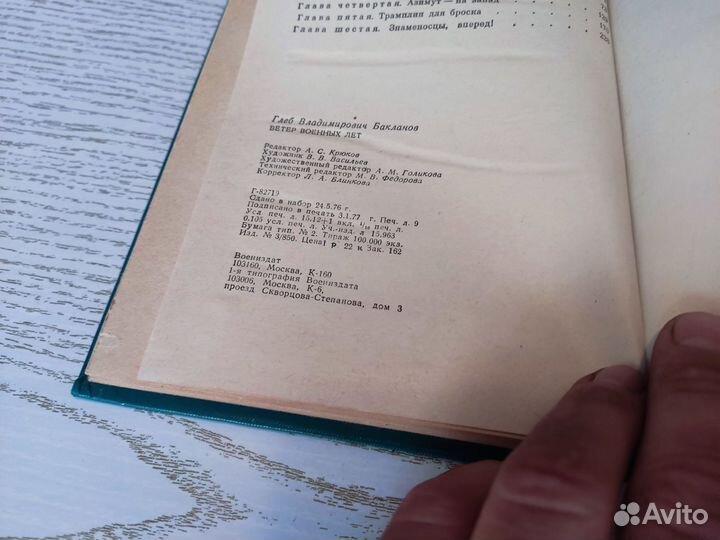 Глава четвертая. Азимут — на запад
Глава пятая. Трамплин для броска
Глава шестая. Знаменосцы, вперед!
Глеб Владимирович Бакланов
ВЕТЕР ВОЕННЫХ ЛЕТ
Редактор А. С. Крюков
Художник В. В. Васильев
Художественный редактор А. М. Голикова
Технический редактор М. В. Федорова
Корректор Л. А. Блинкова
Г-82719
Сдано в набор 24.5.76 г.
Подписано в печать 3.1.77 г. Печ. л. 9
Усл печ. л. 15,12+1 вкл. печ. л.
0,105 усл печ. л. Уч.-изд. л 15,963
Бумага тип. № 2. Тираж 100.000 экз.
Изд. № 3/850. Цена 1 р 22 к Зак. 162
Воениздат
103160, Москва, К-160
1-я типография Воениздата
103006, Москва, К-6,
проезд Скворцова-Степанова, дом 3
Avito